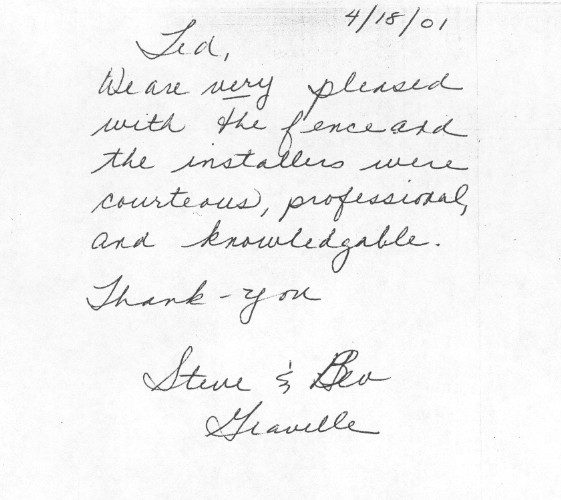 4/18/01
Ted,
We are very pleased
with the fence and
the installers were
courteous, professional,
and knowledgable.
Thank-you
Steve & Bev
Graville